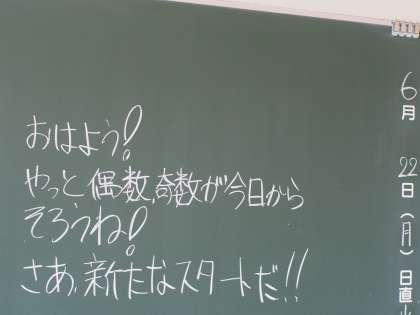 おはよう!
やっと、偶数、奇数が今日から
そろうね!
さあ、新たなスタートだ!!
6月22日(月)日直